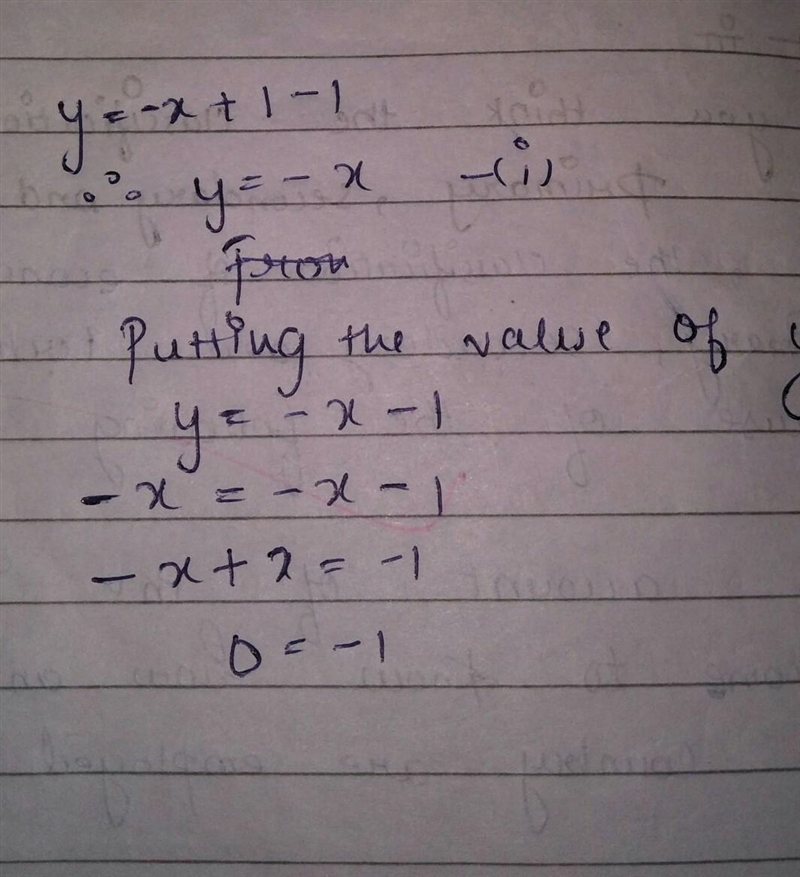 y = -x + 1 - 1
∴ y = - x -(i)
From
Putting the value of y
y = - x - 1
- x = - x - 1
- x + x = -1
0 = -1